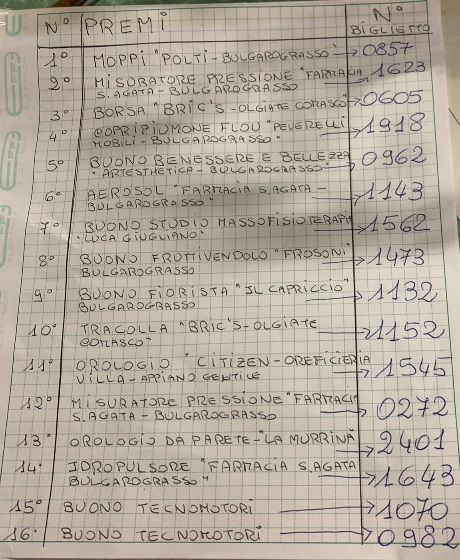 N° PREMI N° BIGLIETTO
1° MOPPI "POLTI - BULGAROGRASSO" → 0857
2° MISURATORE PRESSIONE "FARMACIA → 1623
S. AGATA - BULGAROGRASSO
3° BORSA "BRIC'S - OLGIATE COMASCO → 0605
4° COPRIPIUMONE FLOU "PEVERELLI → 1918
MOBILI - BULGAROGRASSO"
5° BUONO BENESSERE E BELLEZZA 0962
"ARTESTHETICA - BULGAROGRASSO"
6° AEROSOL "FARMACIA S. AGATA - → 1143
BULGAROGRASSO"
7° BUONO STUDIO MASSOFISIOTERAPIA → 1562
"LUCA GIUGLIANO"
8° BUONO FRUTTIVENDOLO "FROSONI → 1473
BULGAROGRASSO
9° BUONO FIORISTA "IL CAPRICCIO" → 1132
BULGAROGRASSO
10° TRACOLLA "BRIC'S - OLGIATE → 1152
COMASCO"
11° OROLOGIO "CITIZEN - OREFICIERIA → 1545
VILLA - APPIANO GENTILE
12° MISURATORE PRESSIONE "FARMACIA → 0272
S. AGATA - BULGAROGRASSO
13° OROLOGIO DA PARETE - "LA MURRINA" → 2401
14° IDROPULSORE "FARMACIA S. AGATA → 1643
BULGAROGRASSO"
15° BUONO TECNOMOTORI → 1070
16° BUONO TECNOMOTORI → 0982